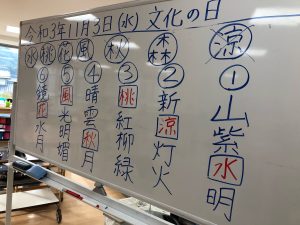 令和3年11月3日(水) 文化の日
水 桃 花 風 秋 森 涼
①山紫水明
②新涼灯火
③桃紅柳緑
④晴雲秋月
⑤風光明媚
⑥鏡花水月